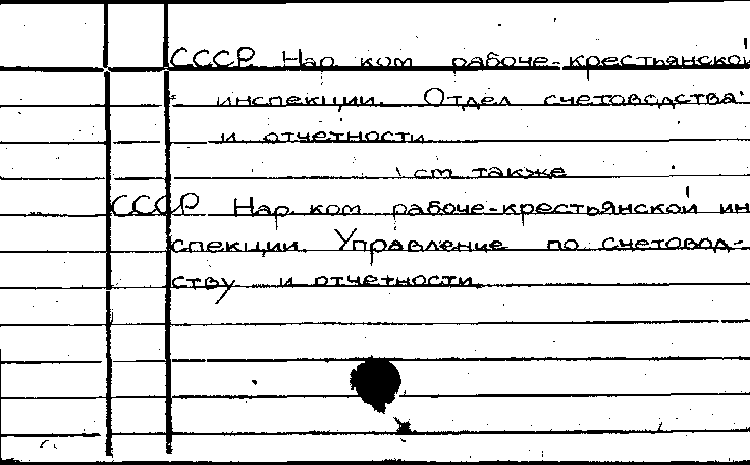 СССР. Нар ком рабоче-крестьянской
инспекции. Отдел счетоводства
и отчетности
см также
СССР Нар ком рабоче-крестьянской ин
спекции. Управление по счетовод-
ству и отчетности.